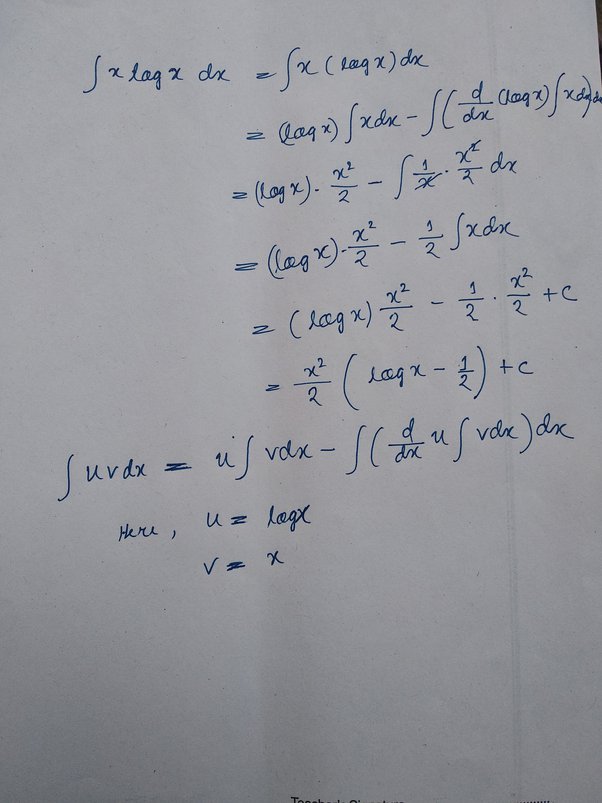 ∫ x log x dx = ∫ x (log x) dx
= (log x) ∫ x dx − ∫ ( d/dx (log x) ∫ x dx) dx
= (log x) · x²/2 − ∫ 1/x · x²/2 dx
= (log x) · x²/2 − 1/2 ∫ x dx
= (log x) x²/2 − 1/2 · x²/2 + c
= x²/2 ( log x − 1/2 ) + c
∫ u v dx = u ∫ v dx − ∫ ( d/dx u ∫ v dx ) dx
Here , u = log x
v = x